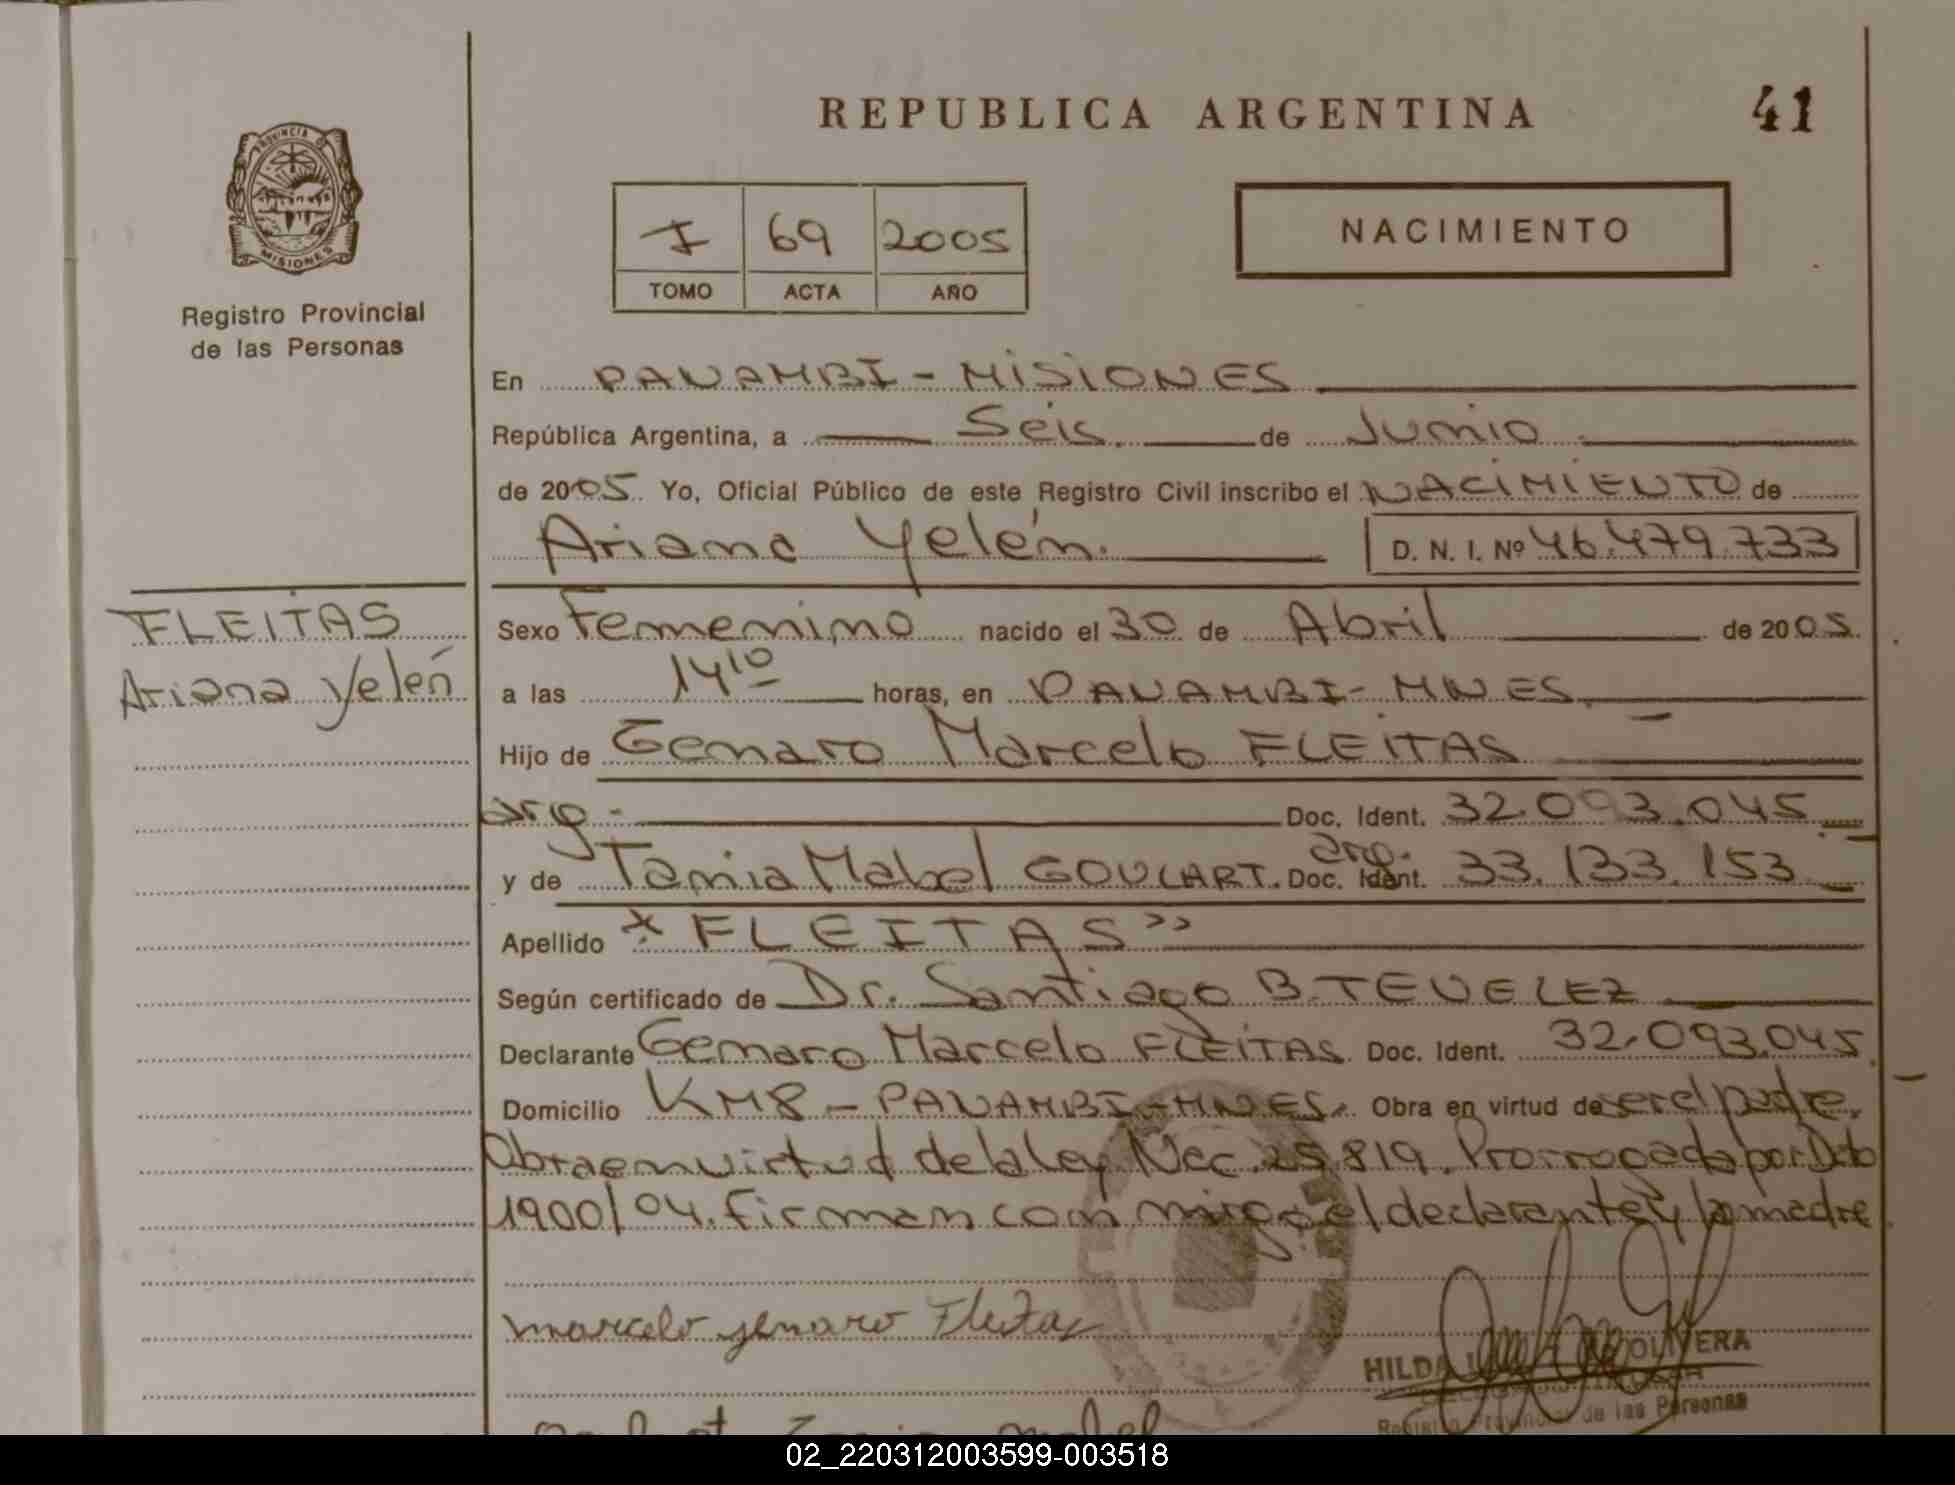 REPUBLICA ARGENTINA
41
PROVINCIA DE
MISIONES
Registro Provincial
de las Personas
I 69 2005
TOMO ACTA AÑO
NACIMIENTO
En PANAMBI - MISIONES
República Argentina, a Seis. de Junio
de 2005 Yo, Oficial Público de este Registro Civil inscribo el NACIMIENTO de
Ariana Yelén. D. N. I. Nº 46.479.733
FLEITAS
Ariana Yelén
Sexo Femenino nacido el 30 de Abril de 2005.
a las 14 10 horas, en PANAMBI - MNES.
Hijo de Genaro Marcelo FLEITAS
arg. Doc. Ident. 32.093.045
y de Tania Mabel GOULART. arg. Doc. Ident. 33.133.153
Apellido "FLEITAS"
Según certificado de Dr. Santiago B. TEVELEZ
Declarante Genaro Marcelo FLEITAS Doc. Ident. 32.093.045
Domicilio KM8 - PANAMBI - MNES. Obra en virtud de ser el padre.
Obra en virtud de la Ley Nac. 25.819. Prorrogada por Dcto
1900/04. Firman conmigo el declarante y la madre
marcelo genaro Fleitas
HILDA OLIVERA
Registro Provincial de las Personas
02_220312003599-003518